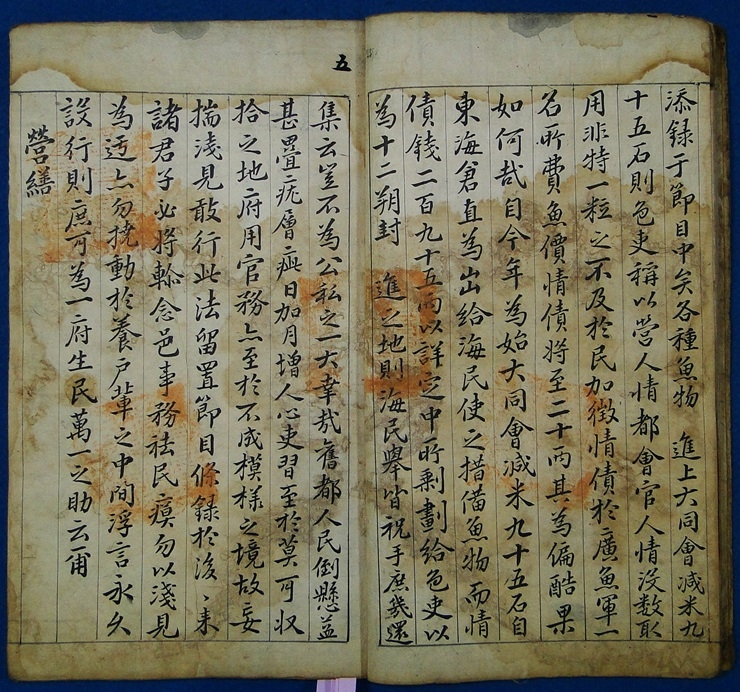 添録于節目中矣各種魚物 進上大同會減米九
十五石則色吏稱以營人情都會官人情沒数取
用非特一粒之不及於民加徵情債於廣魚軍一
名所費魚價情債將至二十両其為偏酷果
如何哉自今年為始大同會減米九十五石自
東海倉直為出給海民使之措備魚物而情
債錢二百九十五両以詳定中所剩劃給色吏以
為十二朔封 進之地則海民舉皆祝手庶幾還
五
集云豈不為公私之一大幸哉舊都人民倒懸益
甚疊疣層瘢日加月增人心吏習至於莫可収
拾之地府用官務亦至於不成模樣之境故妄
揣淺見敢行此法留置節目條録於後後来
諸君子必將軫念邑事務祛民瘼勿以淺見
為适亦勿撓動於養戶輩之中間浮言永久
設行則庶可為一府生民萬一之助云甫
營繕